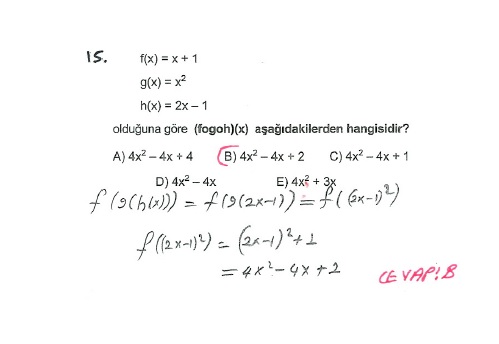 15. f(x) = x + 1
g(x) = x²
h(x) = 2x – 1
olduğuna göre (fogoh)(x) aşağıdakilerden hangisidir?
A) 4x² – 4x + 4 B) 4x² – 4x + 2 C) 4x² – 4x + 1
D) 4x² – 4x E) 4x² + 3x
f(g(h(x))) = f(g(2x-1)) = f((2x-1)²)
f((2x-1)²) = (2x-1)² + 1
= 4x² - 4x + 2
CEVAP: B